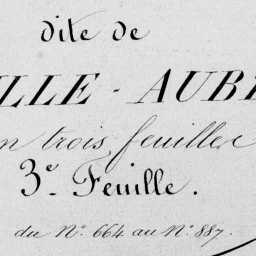 dite de
ILLE - AUBE
en trois feuilles
3e. Feuille.
du No. 664 au No. 887.